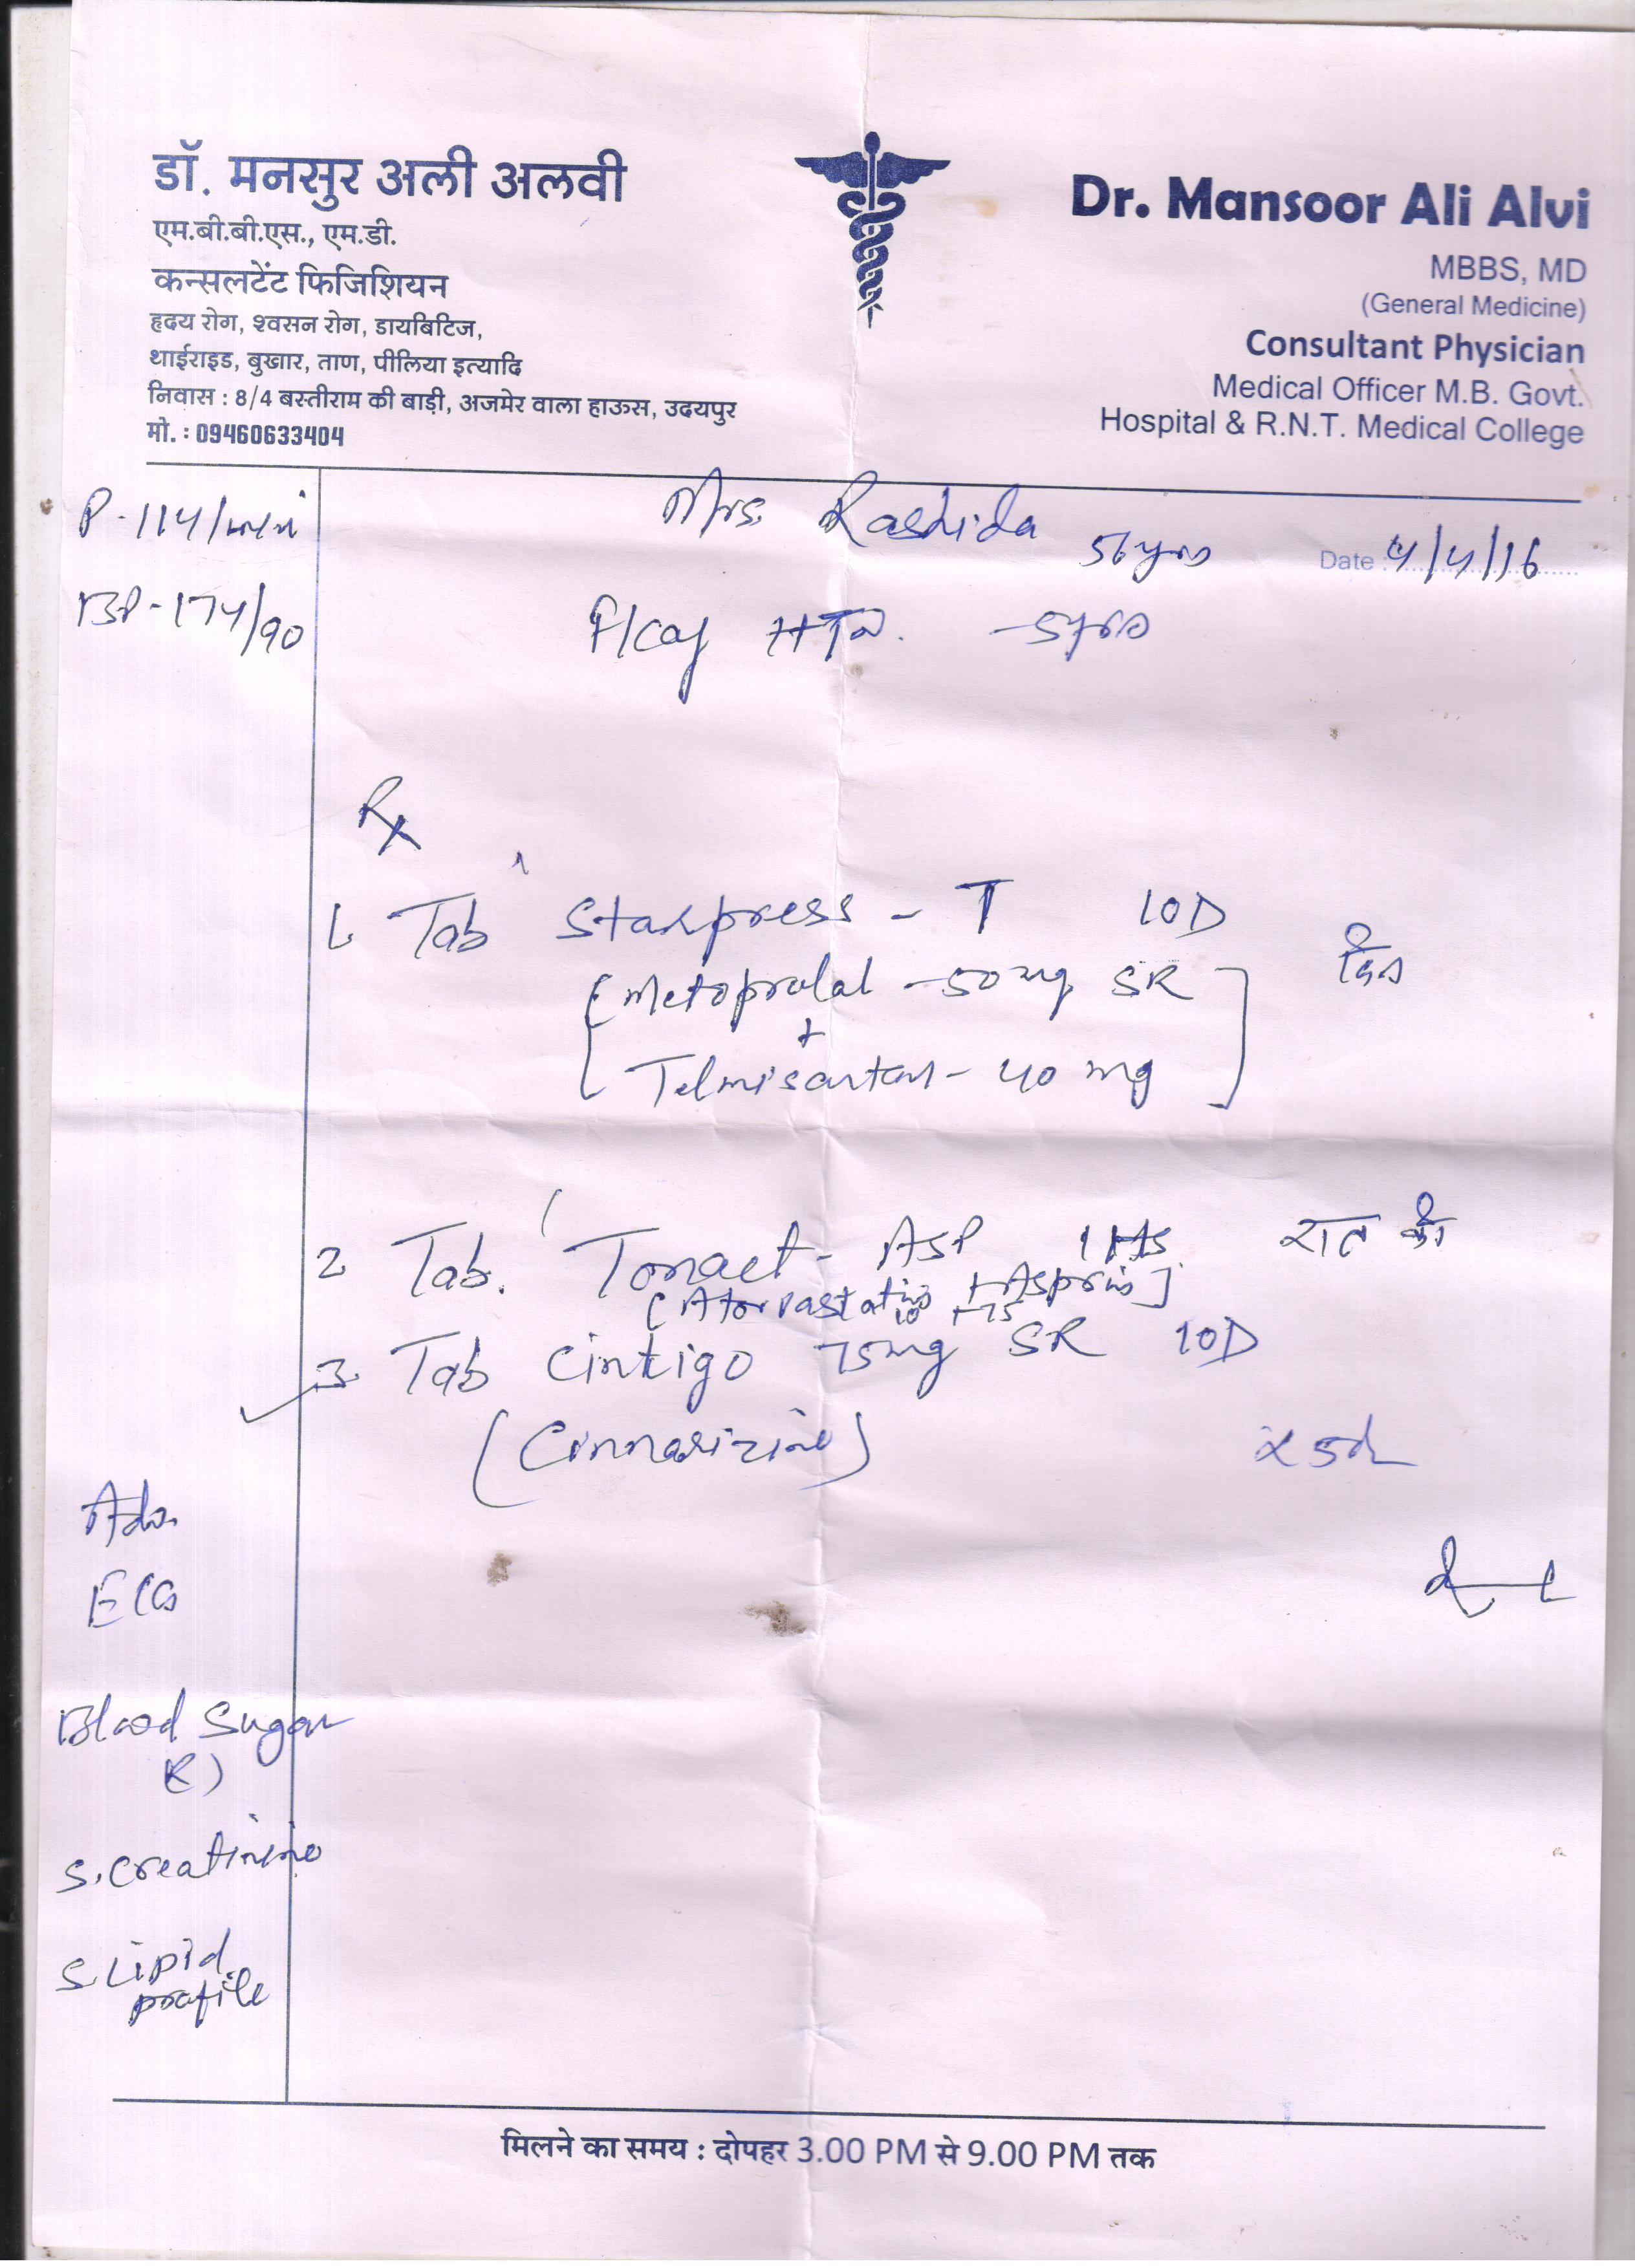 डॉ. मनसुर अली अलवी
एम.बी.बी.एस., एम.डी.
कन्सलटेंट फिजिशियन
हृदय रोग, श्वसन रोग, डायबिटिज,
थाईराइड, बुखार, ताण, पीलिया इत्यादि
निवास : 8/4 बस्तीराम की बाड़ी, अजमेर वाला हाऊस, उदयपुर
मो. : 09460633404
Dr. Mansoor Ali Alvi
MBBS, MD
(General Medicine)
Consultant Physician
Medical Officer M.B. Govt.
Hospital & R.N.T. Medical College
P-114/min
BP-174/90
Mrs. Rashida 56yrs
Date : 4/4/16
HTN. -5yrs
Rx
1. Tab Starpress - T 10D
[Metoprolal -50mg SR
+
Telmisartan - 40 mg]
2 Tab. Tonact - ASP 1 HS रात को
[Atorvastatin + Asprin]
10 +75
3. Tab Cintigo 75mg SR 10D
(Cinnarizine) x 5d
Adv.
ECG
Blood Sugar
(R)
S. Creatinine
S. Lipid
profile
मिलने का समय : दोपहर 3.00 PM से 9.00 PM तक